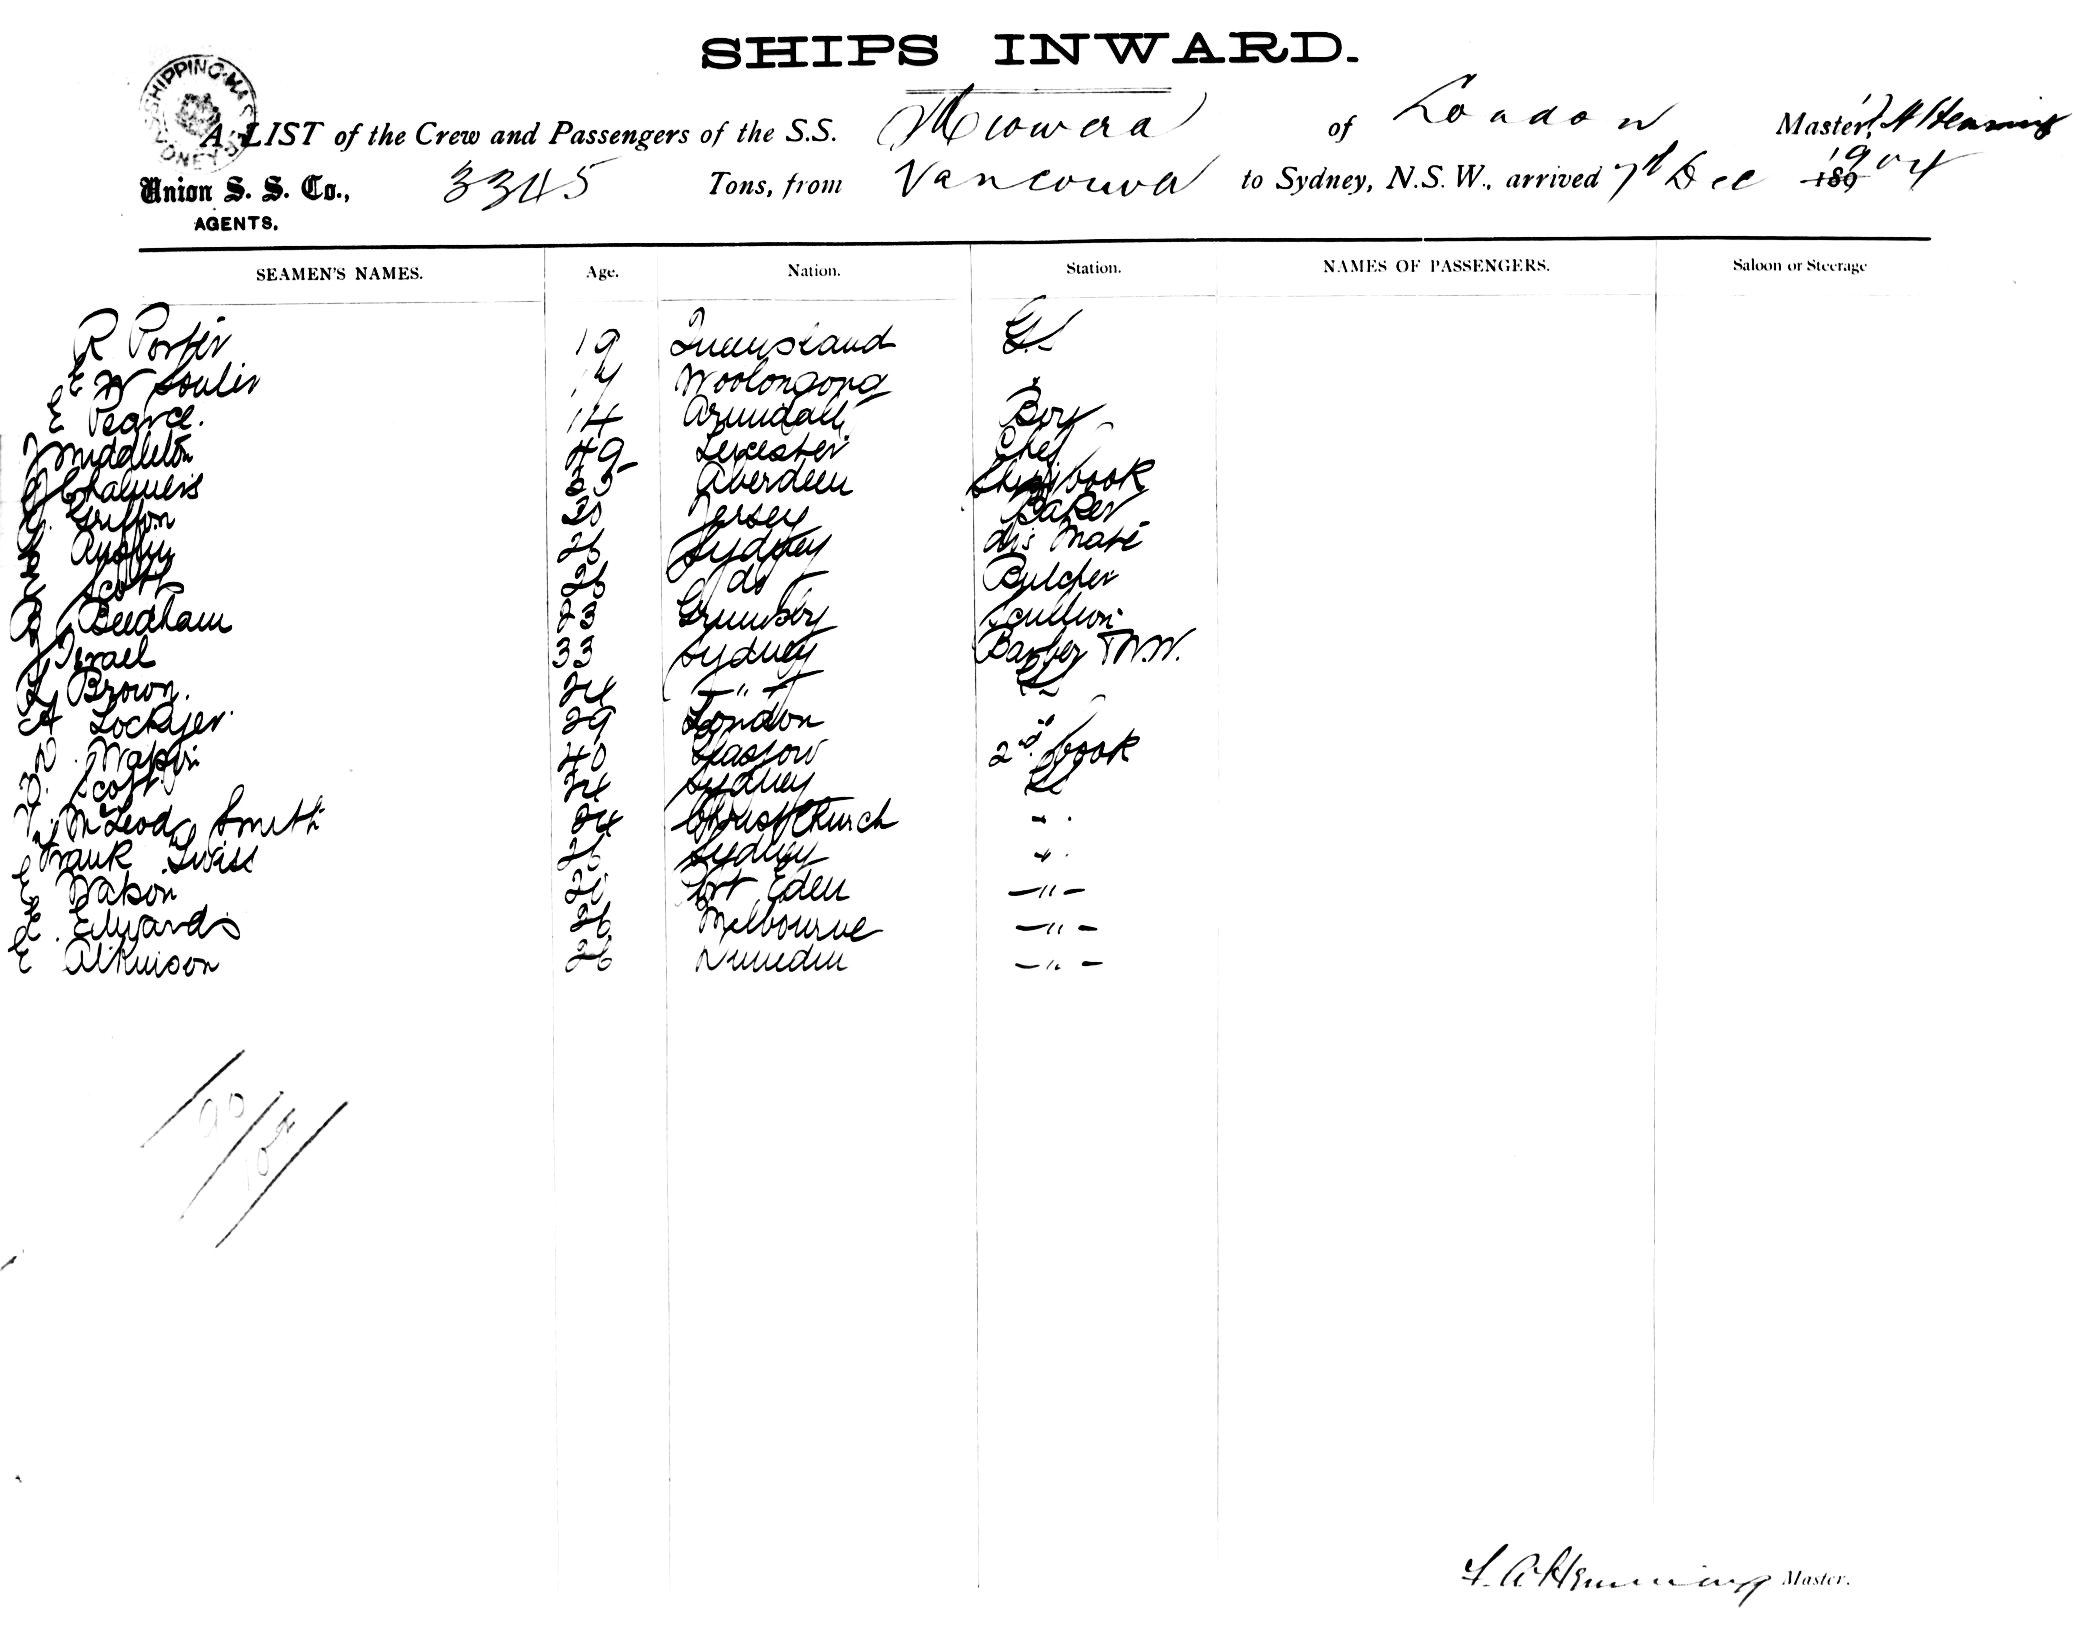 SHIPS INWARD.
A LIST of the Crew and Passengers of the S.S. Miowera of London Master, Hemming
Union S. S. Co., 3345 Tons, from Vancouver to Sydney, N.S.W., arrived 7th Dec 189 1904
AGENTS.
SEAMEN'S NAMES. Age. Nation. Station. NAMES OF PASSENGERS. Saloon or Steerage
R Porter 19 Queensland
E W Soulis Woolongong
E Pearce. 14 Arundall Boy
J Middleton 49 Leicester Chef
Chalmers 35 Aberdeen Ships Cook
G. Griffon 20 Jersey Baker
Austin 26 Sydney do's Mate
Scott 26 do Butcher
B Beedham 23 Grimsby Scullion
J Israel 33 Sydney Barber
L Brown. 24 - " -
A Lockyer 29 London
40 Glasgow 2nd Cook
Scott 24 Sydney
McLeod Smith 24 Christchurch "
Frank Swiss 26 Sydney "
E Watson 20 Port Eden - " -
Edwards 26 Melbourne - " -
E Atkinson 26 Dunedin - " -
F. A. Hemming Master.